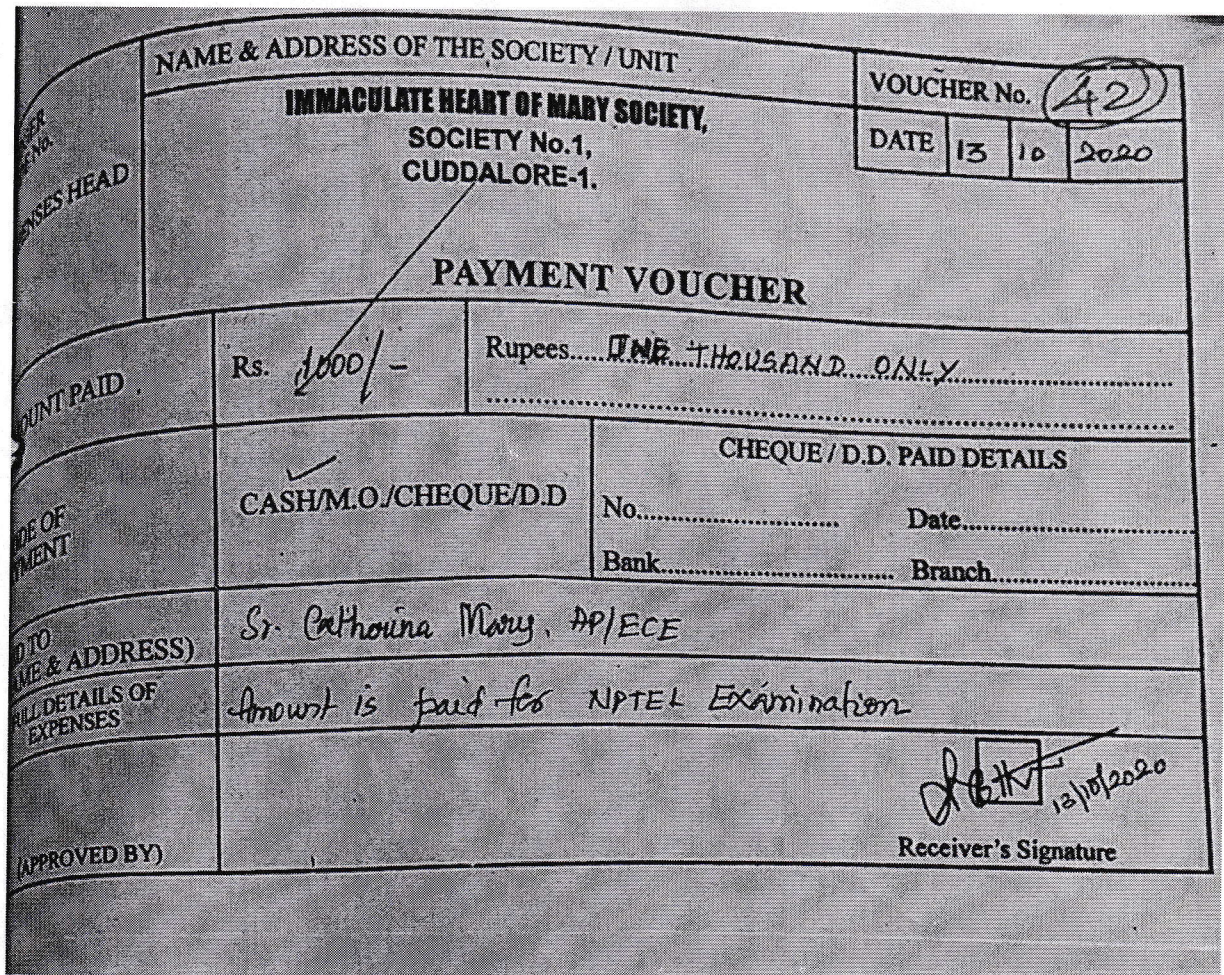 NAME & ADDRESS OF THE SOCIETY / UNIT
VOUCHER No. 42
IMMACULATE HEART OF MARY SOCIETY,
SOCIETY No.1,
CUDDALORE-1.
DATE 13 10 2020
ENSES HEAD
PAYMENT VOUCHER
OUNT PAID
Rs. 1000/-
Rupees ONE THOUSAND ONLY
DE OF
MENT
CASH/M.O./CHEQUE/D.D
CHEQUE / D.D. PAID DETAILS
No. Date
Bank Branch
D TO
ME & ADDRESS)
Sr. Cathorina Mary, AP/ECE
DETAILS OF
EXPENSES
Amount is paid for NPTEL Examination
13/10/2020
(APPROVED BY)
Receiver's Signature